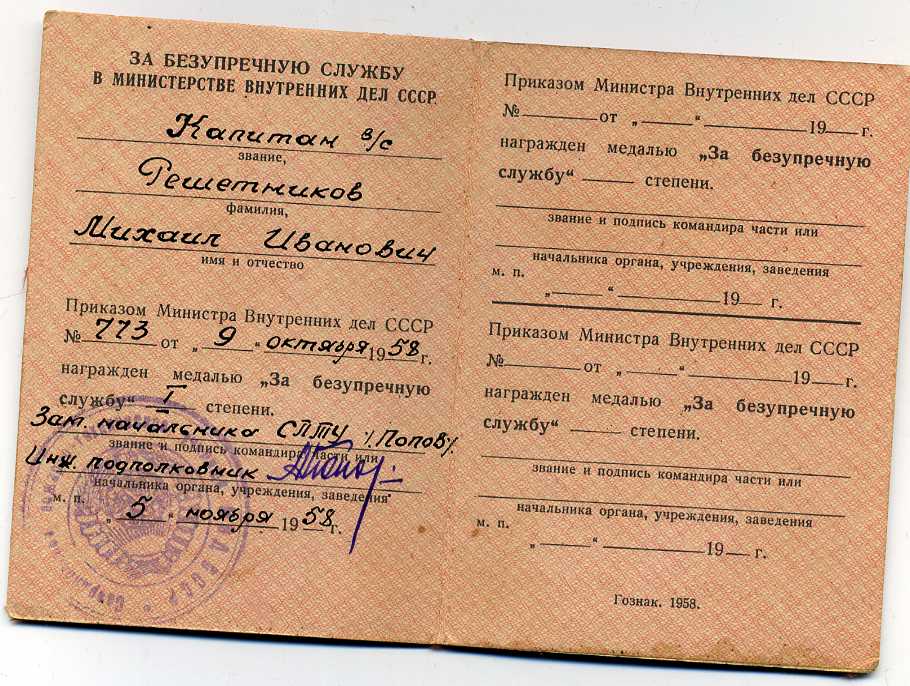 ЗА БЕЗУПРЕЧНУЮ СЛУЖБУ
В МИНИСТЕРСТВЕ ВНУТРЕННИХ ДЕЛ СССР
Капитан в/с
звание,
Решетников
фамилия,
Михаил Иванович
имя и отчество
Приказом Министра Внутренних дел СССР
№ 773 от „ 9 “ октября 1958 г.
награжден медалью „За безупречную
службу“ I степени.
Зам. начальника СЛТУ /Попов/.
звание и подпись командира части или
Инж. подполковник
начальника органа, учреждения, заведения
м. п.
„ 5 “ ноября 1958 г.
Приказом Министра Внутренних дел СССР
№ от „ “ 19 г.
награжден медалью „За безупречную
службу“ степени.
звание и подпись командира части или
начальника органа, учреждения, заведения
м. п.
„ “ 19 г.
Приказом Министра Внутренних дел СССР
№ от „ “ 19 г.
награжден медалью „За безупречную
службу“ степени.
звание и подпись командира части или
начальника органа, учреждения, заведения
м. п.
„ “ 19 г.
Гознак. 1958.